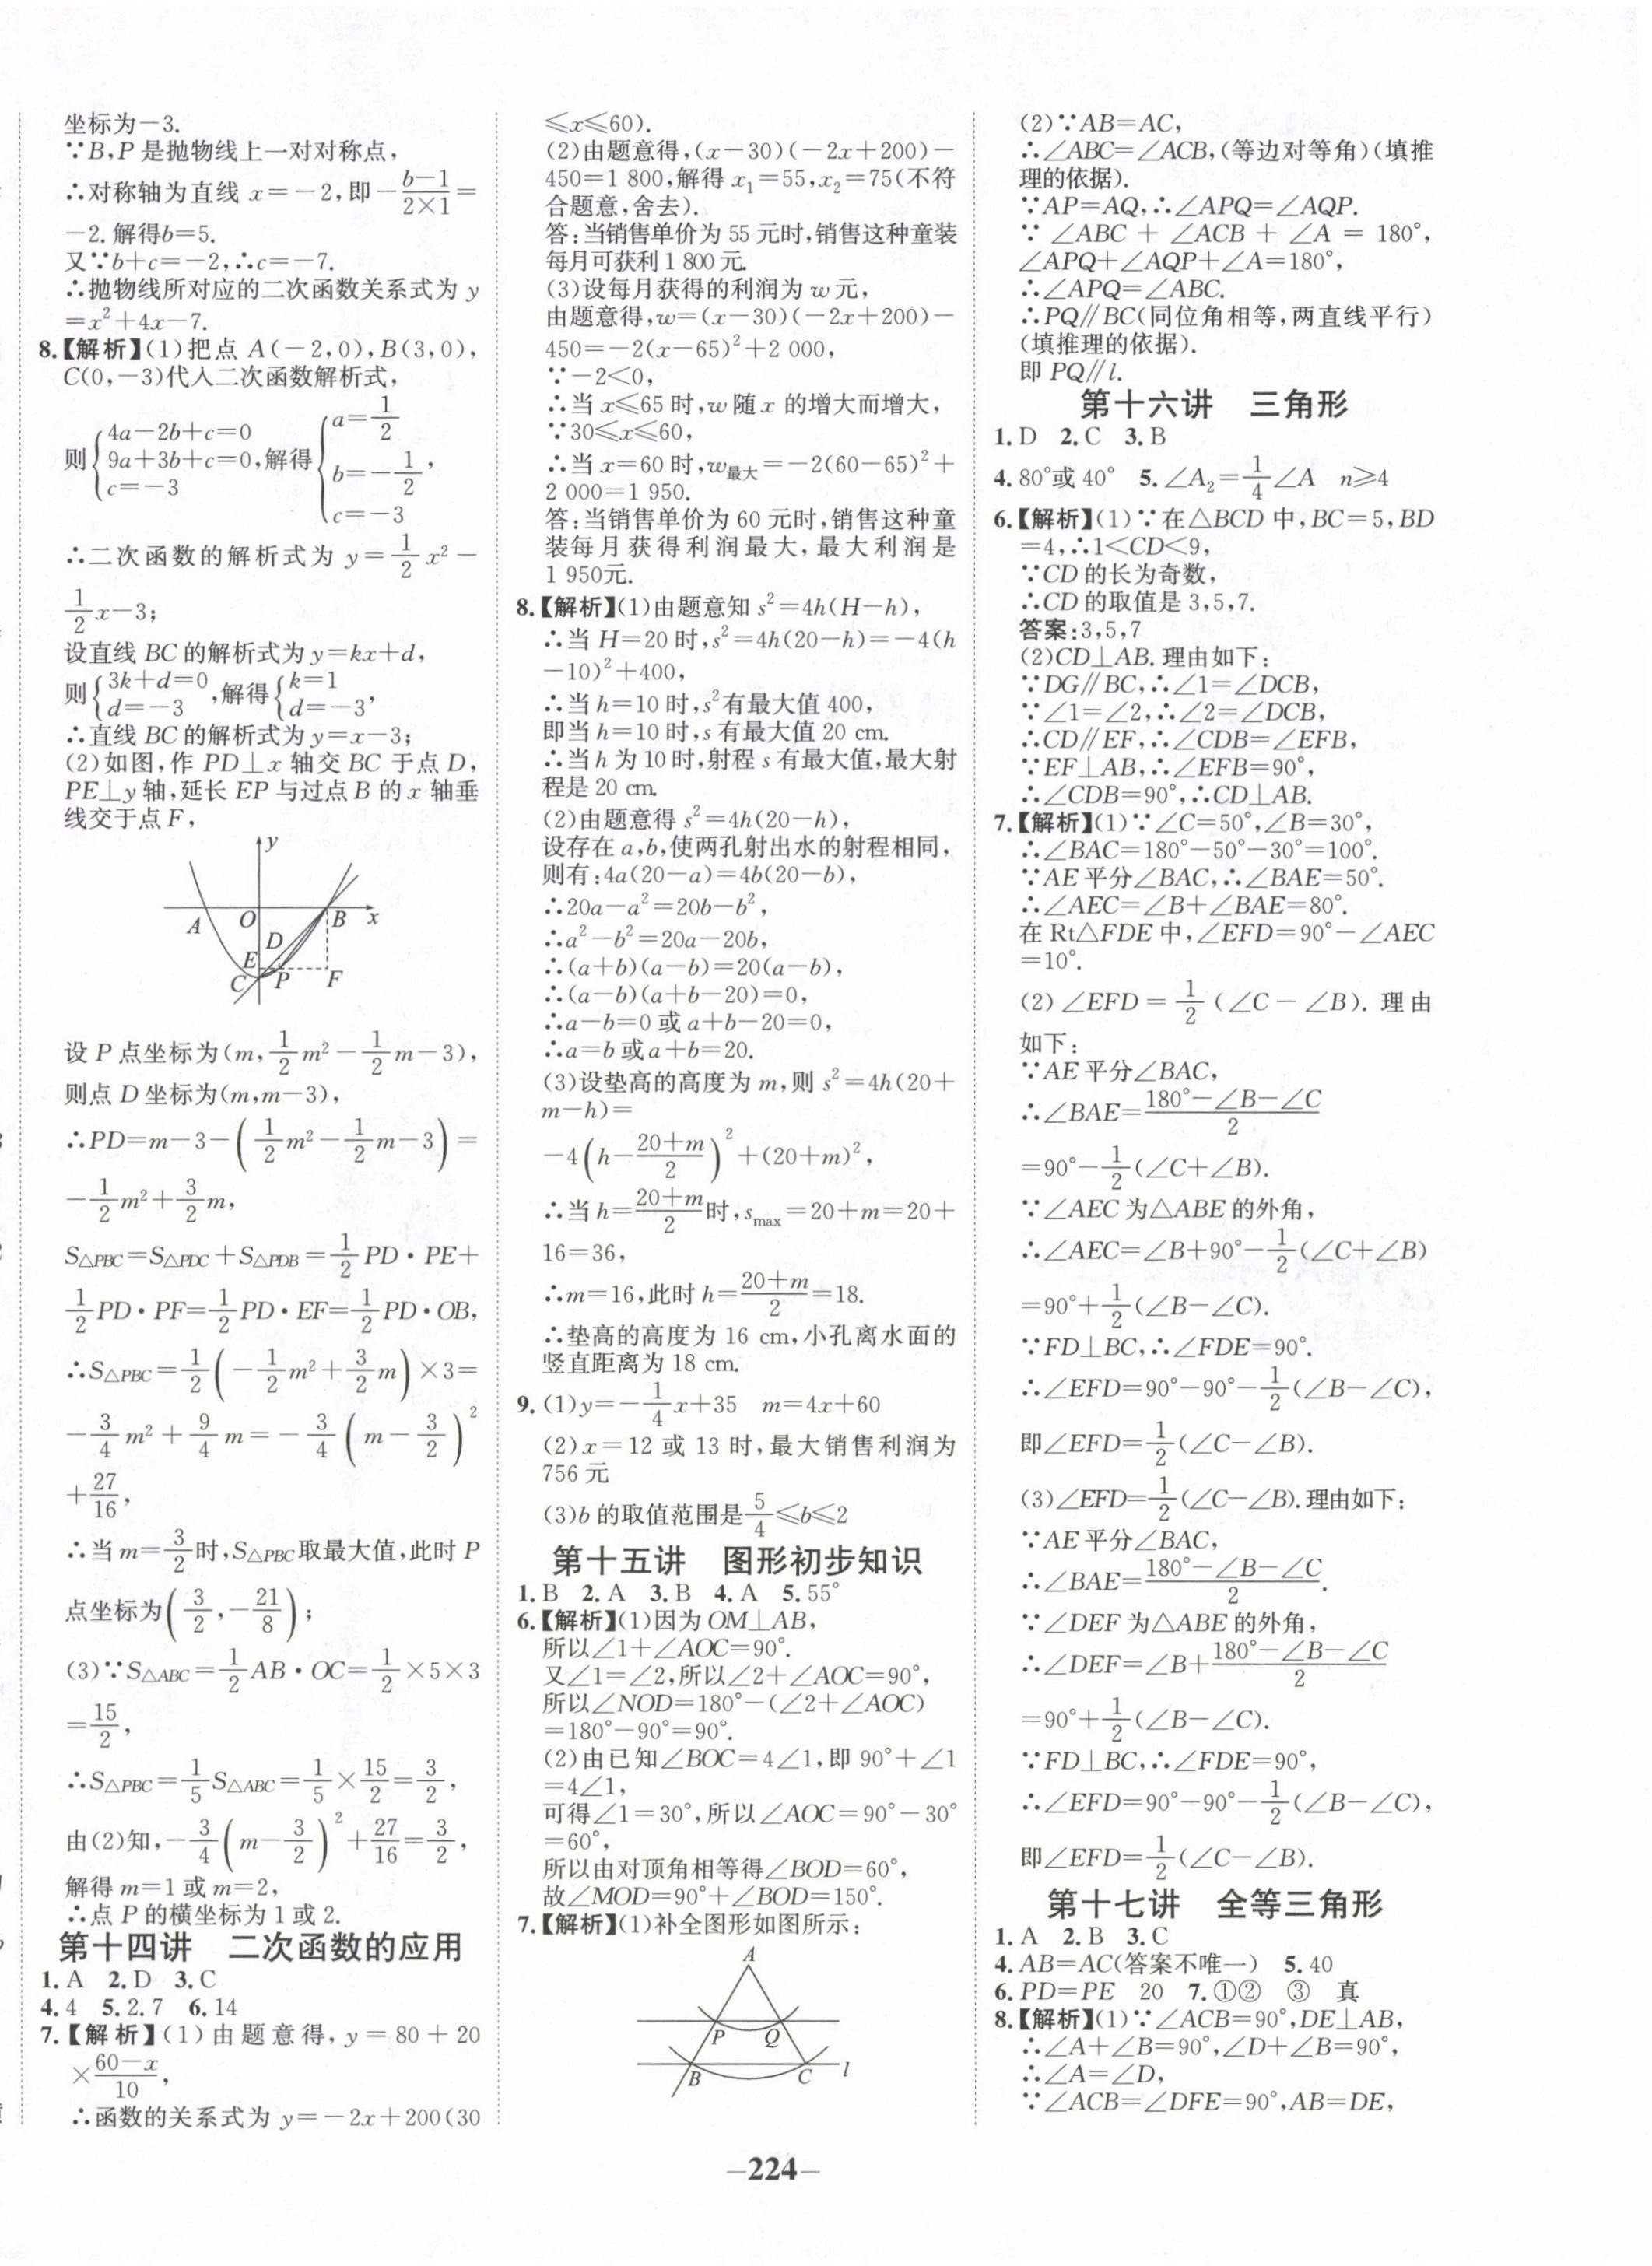 坐标为－3.
∵B,P 是抛物线上一对对称点,
∴对称轴为直线 x＝－2,即－(b－1)/(2×1)＝
－2.解得b＝5.
又∵b＋c＝－2,∴c＝－7.
∴抛物线所对应的二次函数关系式为 y
＝x²＋4x－7.
8.【解析】(1)把点 A(－2,0),B(3,0),
C(0,－3)代入二次函数解析式,
则{4a－2b＋c＝0 9a＋3b＋c＝0 c＝－3,解得{a＝1/2 b＝－1/2 c＝－3,
∴二次函数的解析式为 y＝1/2 x²－
1/2 x－3;
设直线 BC 的解析式为 y＝kx＋d,
则{3k＋d＝0 d＝－3,解得{k＝1 d＝－3,
∴直线 BC 的解析式为 y＝x－3;
(2)如图,作 PD⊥x 轴交 BC 于点 D,
PE⊥y 轴,延长 EP 与过点 B 的 x 轴垂
线交于点 F,
y
A O B x
D
E
C P F
设 P 点坐标为(m,1/2 m²－1/2 m－3),
则点 D 坐标为(m,m－3),
∴PD＝m－3－(1/2 m²－1/2 m－3)＝
－1/2 m²＋3/2 m,
S△PBC＝S△PDC＋S△PDB＝1/2 PD·PE＋
1/2 PD·PF＝1/2 PD·EF＝1/2 PD·OB,
∴S△PBC＝1/2(－1/2 m²＋3/2 m)×3＝
－3/4 m²＋9/4 m＝－3/4(m－3/2)²
＋27/16,
∴当 m＝3/2时,S△PBC取最大值,此时 P
点坐标为(3/2,－21/8);
(3)∵S△ABC＝1/2 AB·OC＝1/2×5×3
＝15/2,
∴S△PBC＝1/5 S△ABC＝1/5×15/2＝3/2,
由(2)知,－3/4(m－3/2)²＋27/16＝3/2,
解得 m＝1 或 m＝2,
∴点 P 的横坐标为 1 或 2.
第十四讲　二次函数的应用
1. A 2. D 3. C
4. 4 5. 2.7 6. 14
7.【解析】(1)由题意得,y＝80＋20
×(60－x)/10,
∴函数的关系式为 y＝－2x＋200(30
≤x≤60).
(2)由题意得,(x－30)(－2x＋200)－
450＝1 800,解得 x₁＝55,x₂＝75(不符
合题意,舍去).
答:当销售单价为 55 元时,销售这种童装
每月可获利 1 800 元.
(3)设每月获得的利润为 w 元,
由题意得,w＝(x－30)(－2x＋200)－
450＝－2(x－65)²＋2 000,
∵－2＜0,
∴当 x≤65 时,w 随 x 的增大而增大,
∵30≤x≤60,
∴当 x＝60 时,w最大＝－2(60－65)²＋
2 000＝1 950.
答:当销售单价为 60 元时,销售这种童
装每月获得利润最大,最大利润是
1 950元.
8.【解析】(1)由题意知 s²＝4h(H－h),
∴当 H＝20 时,s²＝4h(20－h)＝－4(h
－10)²＋400,
∴当 h＝10 时,s²有最大值 400,
即当 h＝10 时,s 有最大值 20 cm.
∴当 h 为 10 时,射程 s 有最大值,最大射
程是 20 cm.
(2)由题意得 s²＝4h(20－h),
设存在 a,b,使两孔射出水的射程相同,
则有:4a(20－a)＝4b(20－b),
∴20a－a²＝20b－b²,
∴a²－b²＝20a－20b,
∴(a＋b)(a－b)＝20(a－b),
∴(a－b)(a＋b－20)＝0,
∴a－b＝0 或 a＋b－20＝0,
∴a＝b 或 a＋b＝20.
(3)设垫高的高度为 m,则 s²＝4h(20＋
m－h)＝
－4(h－(20＋m)/2)²＋(20＋m)²,
∴当 h＝(20＋m)/2时,smax＝20＋m＝20＋
16＝36,
∴m＝16,此时 h＝(20＋m)/2＝18.
∴垫高的高度为 16 cm,小孔离水面的
竖直距离为 18 cm.
9. (1)y＝－1/4 x＋35　m＝4x＋60
(2)x＝12 或 13 时,最大销售利润为
756 元
(3)b 的取值范围是5/4≤b≤2
第十五讲　图形初步知识
1. B 2. A 3. B 4. A 5. 55°
6.【解析】(1)因为 OM⊥AB,
所以∠1＋∠AOC＝90°.
又∠1＝∠2,所以∠2＋∠AOC＝90°,
所以∠NOD＝180°－(∠2＋∠AOC)
＝180°－90°＝90°.
(2)由已知∠BOC＝4∠1,即 90°＋∠1
＝4∠1,
可得∠1＝30°,所以∠AOC＝90°－30°
＝60°,
所以由对顶角相等得∠BOD＝60°,
故∠MOD＝90°＋∠BOD＝150°.
7.【解析】(1)补全图形如图所示:
A
P Q
B C l
(2)∵AB＝AC,
∴∠ABC＝∠ACB,(等边对等角)(填推
理的依据).
∵AP＝AQ,∴∠APQ＝∠AQP.
∵∠ABC＋∠ACB＋∠A＝180°,
∠APQ＋∠AQP＋∠A＝180°,
∴∠APQ＝∠ABC.
∴PQ∥BC(同位角相等,两直线平行)
(填推理的依据).
即 PQ∥l.
第十六讲　三角形
1. D 2. C 3. B
4. 80°或 40° 5. ∠A₂＝1/4∠A　n≥4
6.【解析】(1)∵在△BCD 中,BC＝5,BD
＝4,∴1＜CD＜9,
∵CD 的长为奇数,
∴CD 的取值是 3,5,7.
答案:3,5,7
(2)CD⊥AB.理由如下:
∵DG∥BC,∴∠1＝∠DCB,
∵∠1＝∠2,∴∠2＝∠DCB,
∴CD∥EF,∴∠CDB＝∠EFB,
∵EF⊥AB,∴∠EFB＝90°,
∴∠CDB＝90°,∴CD⊥AB.
7.【解析】(1)∵∠C＝50°,∠B＝30°,
∴∠BAC＝180°－50°－30°＝100°.
∵AE 平分∠BAC,∴∠BAE＝50°.
∴∠AEC＝∠B＋∠BAE＝80°.
在 Rt△FDE 中,∠EFD＝90°－∠AEC
＝10°.
(2)∠EFD＝1/2(∠C－∠B).理由
如下:
∵AE 平分∠BAC,
∴∠BAE＝(180°－∠B－∠C)/2
＝90°－1/2(∠C＋∠B).
∵∠AEC 为△ABE 的外角,
∴∠AEC＝∠B＋90°－1/2(∠C＋∠B)
＝90°＋1/2(∠B－∠C).
∵FD⊥BC,∴∠FDE＝90°.
∴∠EFD＝90°－90°－1/2(∠B－∠C),
即∠EFD＝1/2(∠C－∠B).
(3)∠EFD＝1/2(∠C－∠B).理由如下:
∵AE 平分∠BAC,
∴∠BAE＝(180°－∠B－∠C)/2.
∵∠DEF 为△ABE 的外角,
∴∠DEF＝∠B＋(180°－∠B－∠C)/2
＝90°＋1/2(∠B－∠C).
∵FD⊥BC,∴∠FDE＝90°,
∴∠EFD＝90°－90°－1/2(∠B－∠C),
即∠EFD＝1/2(∠C－∠B).
第十七讲　全等三角形
1. A 2. B 3. C
4. AB＝AC(答案不唯一) 5. 40
6. PD＝PE　20 7. ①②　③　真
8.【解析】(1)∵∠ACB＝90°,DE⊥AB,
∴∠A＋∠B＝90°,∠D＋∠B＝90°,
∴∠A＝∠D,
∵∠ACB＝∠DFE＝90°,AB＝DE,
－224－